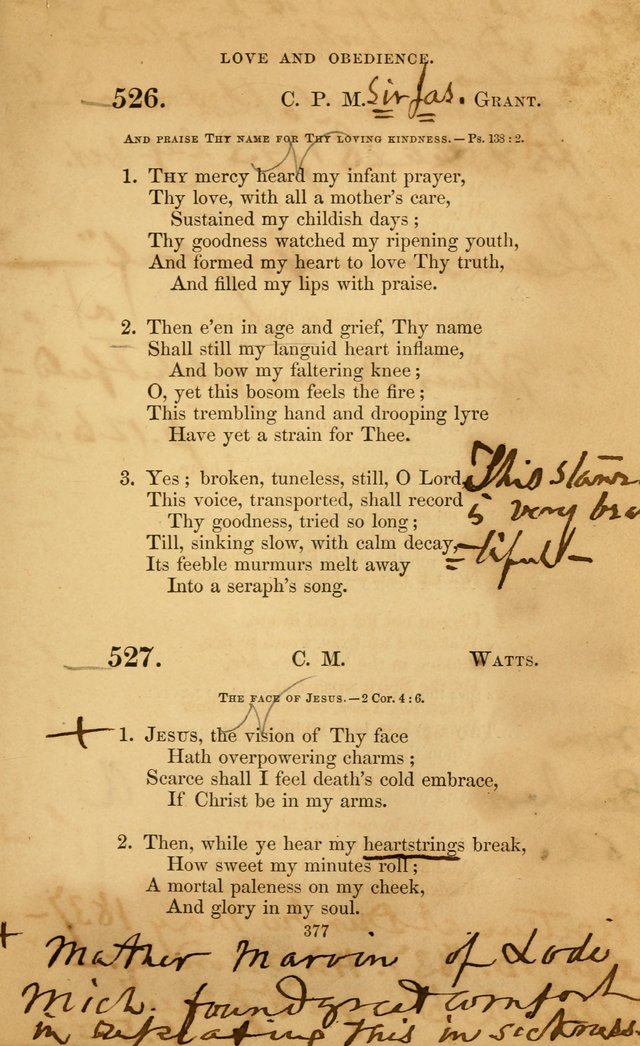 LOVE AND OBEDIENCE.
526. C. P. M. Sir Jas. GRANT.
AND PRAISE THY NAME FOR THY LOVING KINDNESS. — Ps. 138 : 2.
1. THY mercy heard my infant prayer,
Thy love, with all a mother's care,
Sustained my childish days ;
Thy goodness watched my ripening youth,
And formed my heart to love Thy truth,
And filled my lips with praise.
2. Then e'en in age and grief, Thy name
Shall still my languid heart inflame,
And bow my faltering knee ;
O, yet this bosom feels the fire ;
This trembling hand and drooping lyre
Have yet a strain for Thee.
3. Yes ; broken, tuneless, still, O Lord,
This voice, transported, shall record
Thy goodness, tried so long ;
Till, sinking slow, with calm decay,
Its feeble murmurs melt away
Into a seraph's song.
This stanz
is very beau
=tiful—
527. C. M. WATTS.
THE FACE OF JESUS. — 2 Cor. 4 : 6.
+ 1. JESUS, the vision of Thy face
Hath overpowering charms ;
Scarce shall I feel death's cold embrace,
If Christ be in my arms.
2. Then, while ye hear my heartstrings break,
How sweet my minutes roll ;
A mortal paleness on my cheek,
And glory in my soul.
377
+ Mother Marvin of Lodi
Mich. found great comfort
in repeating this in sickness.